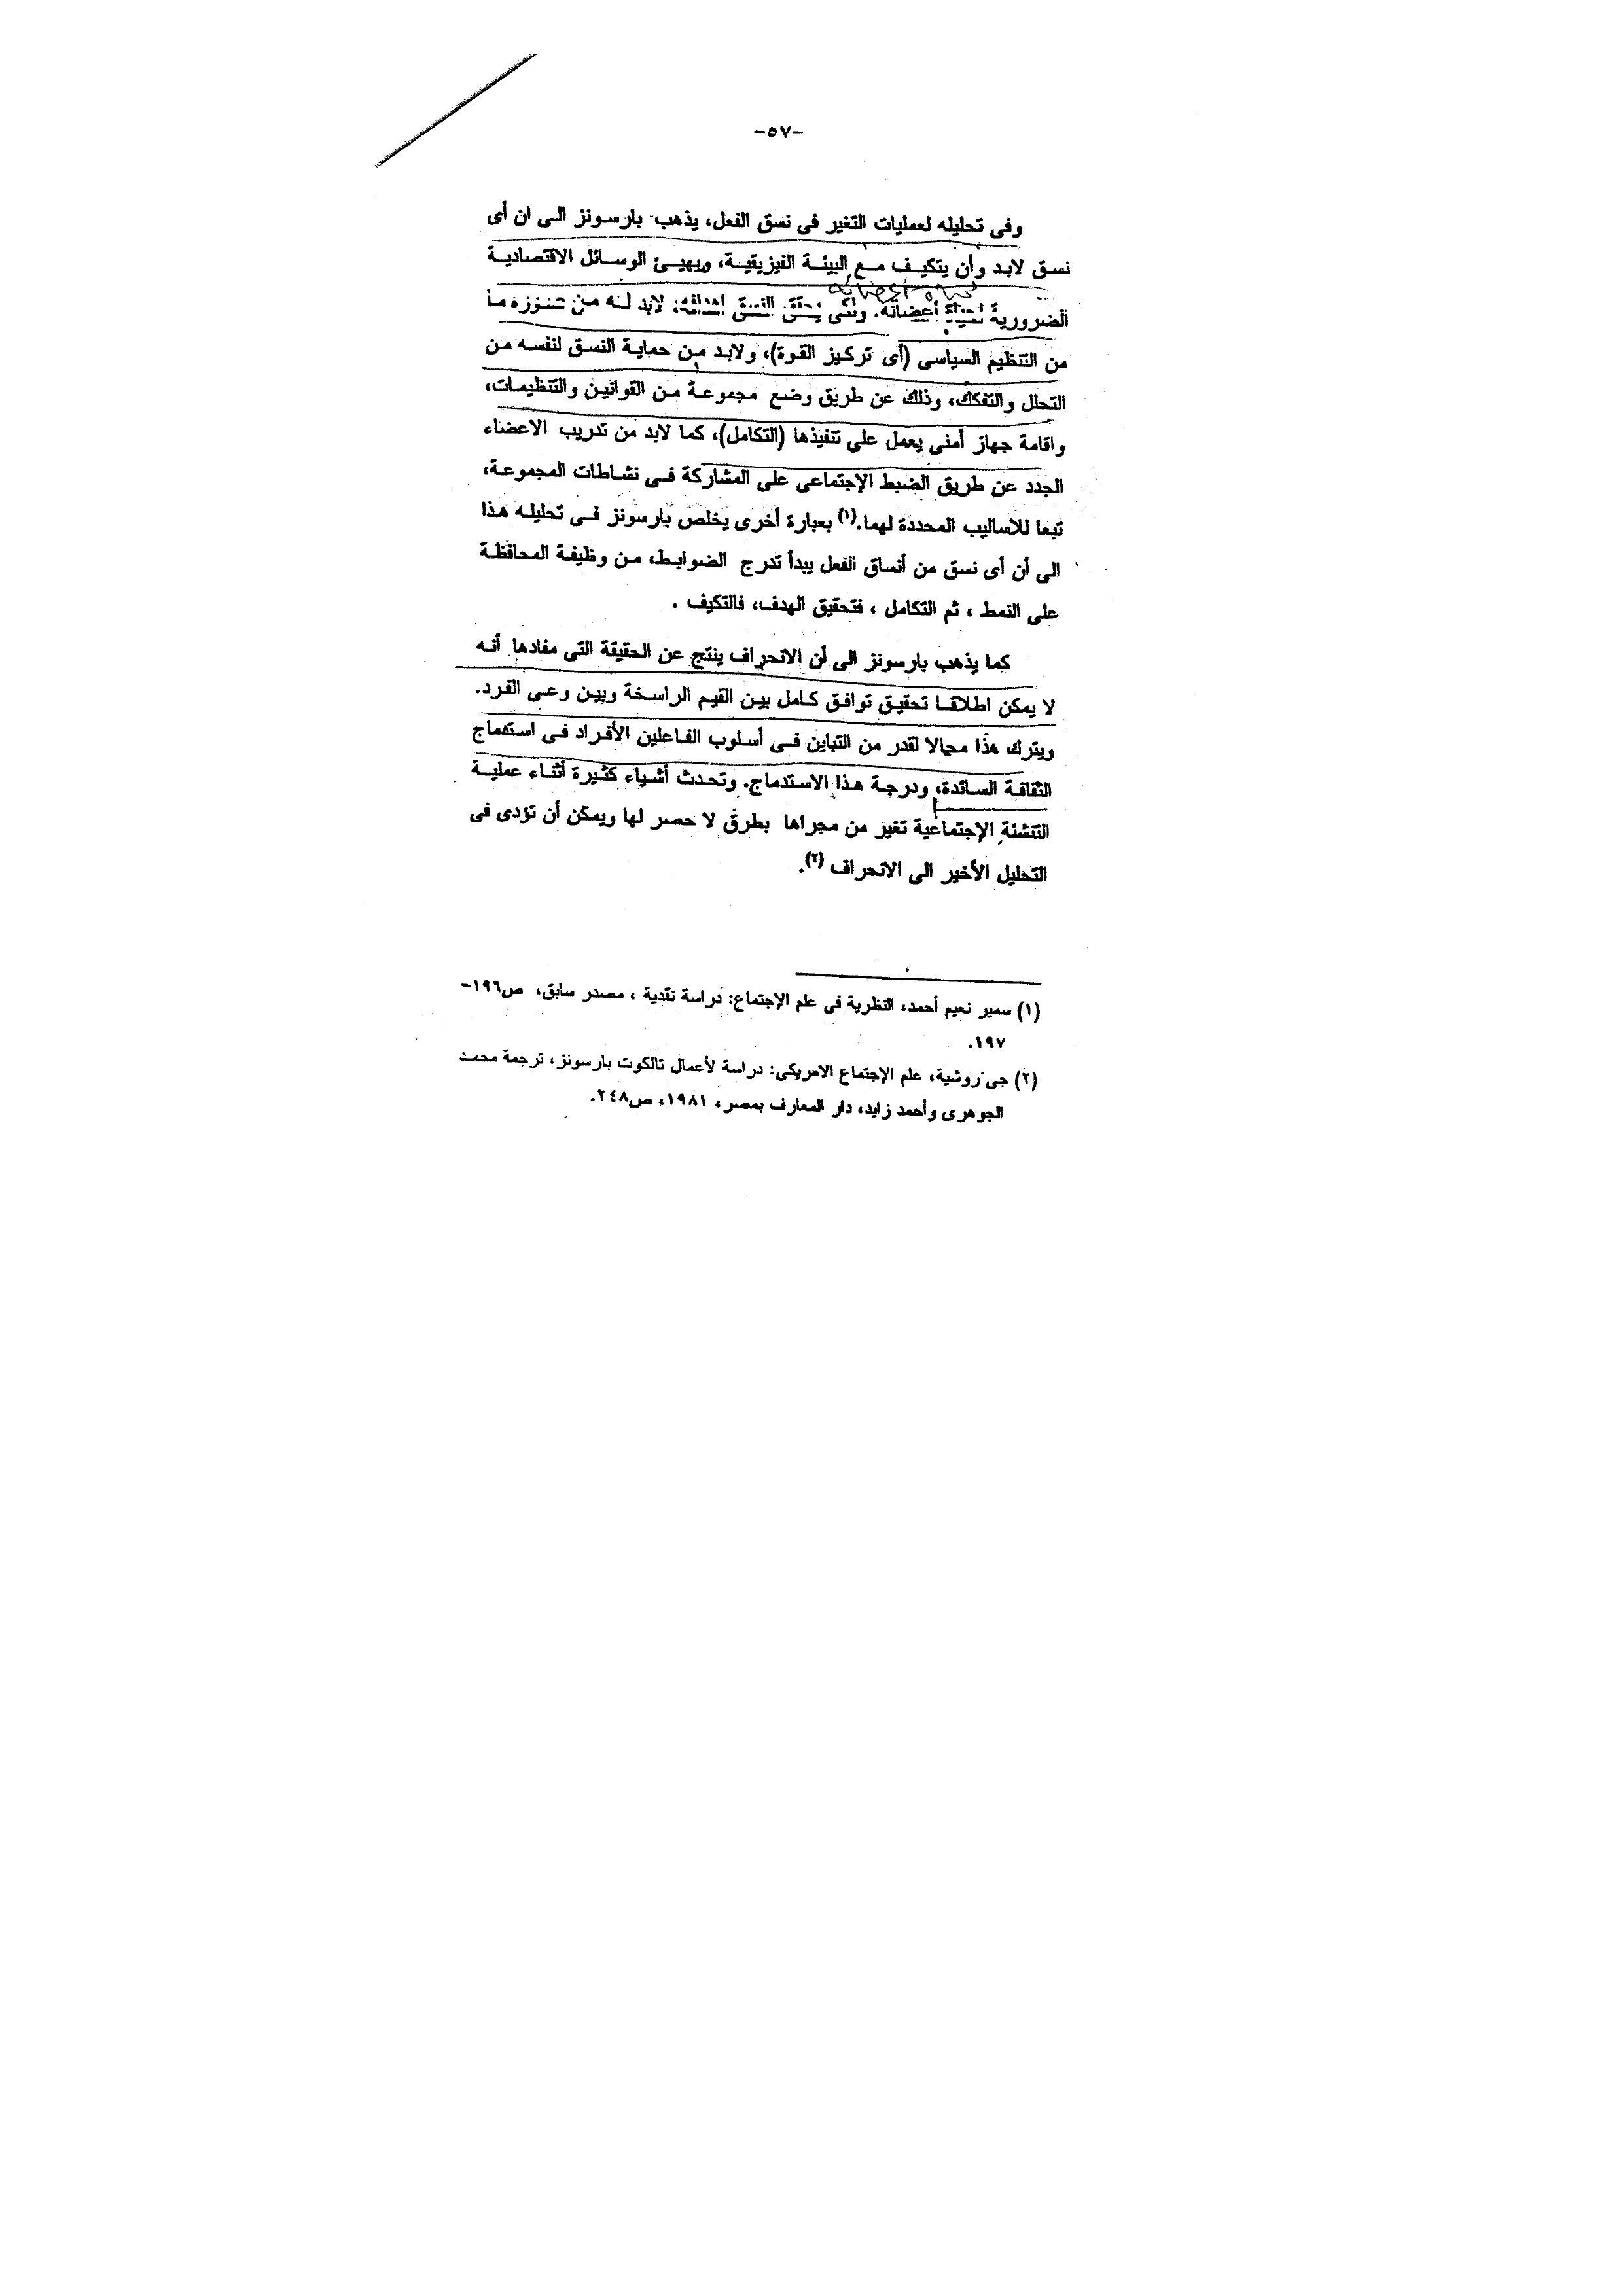 -٥٧-
وفى تحليله لعمليات التغير فى نسق الفعل، يذهب بارسونز الـى ان أى
نسـق لابـد وأن يتكيـف مـع البيئـة الفيزيقيـة، ويهيـئ الوسـائل الاقتصاديـة
لحياة اعضائه
الضرورية لحياة أعضائه. ولكى يحقق النسق اهدافه، لابد لـه مـن صـورة مـا
من التنظيم السياسى (أى تركيز القوة)، ولابـد مـن حمايـة النسـق لنفسـه مـن
التحلل والتفكك، وذلك عن طريق وضع مجموعـة مـن القوانين والتنظيمـات،
واقامة جهاز أمنى يعمل على تنفيذها (التكامل)، كما لابد من تدريب الاعضاء
الجدد عن طريق الضبط الإجتماعى على المشاركة فـى نشـاطات المجموعـة،
تبعا للأساليب المحددة لهما.(١) بعبارة أخرى يخلص بارسونز فـى تحليلـه هـذا
الى أن أى نسق من أنساق الفعل يبدأ تدرج الضوابـط، مـن وظيفـة المحافظـة
على النمط ، ثم التكامل ، فتحقيق الهدف، فالتكيف .
كما يذهب بارسونز الى أن الانحراف ينتج عن الحقيقة التى مفادها أنـه
لا يمكن اطلاقـا تحقيـق توافـق كـامل بيـن القيـم الراسـخة وبيـن وعـى الفـرد.
ويترك هذا مجالا لقدر من التباين فـى أسـلوب الفـاعلين الأفـراد فـى استدماج
الثقافـة السـائدة، ودرجـة هـذا الاسـتدماج. وتحـدث أشـياء كثيرة أثنـاء عمليـة
التنشئة الإجتماعية تغير من مجراها بطرق لا حصر لها ويمكن أن تؤدى فى
التحليل الأخير الى الانحراف (٢).
(١) سمير نعيم أحمد، النظرية فى علم الإجتماع: دراسة نقدية ، مصدر سابق، ص١٩٦-
١٩٧.
(٢) جى روشية، علم الإجتماع الامريكى: دراسة لأعمال تالكوت بارسونز، ترجمة محمـد
الجوهرى وأحمد زايد، دار المعارف بمصر، ١٩٨١، ص٢٤٨.